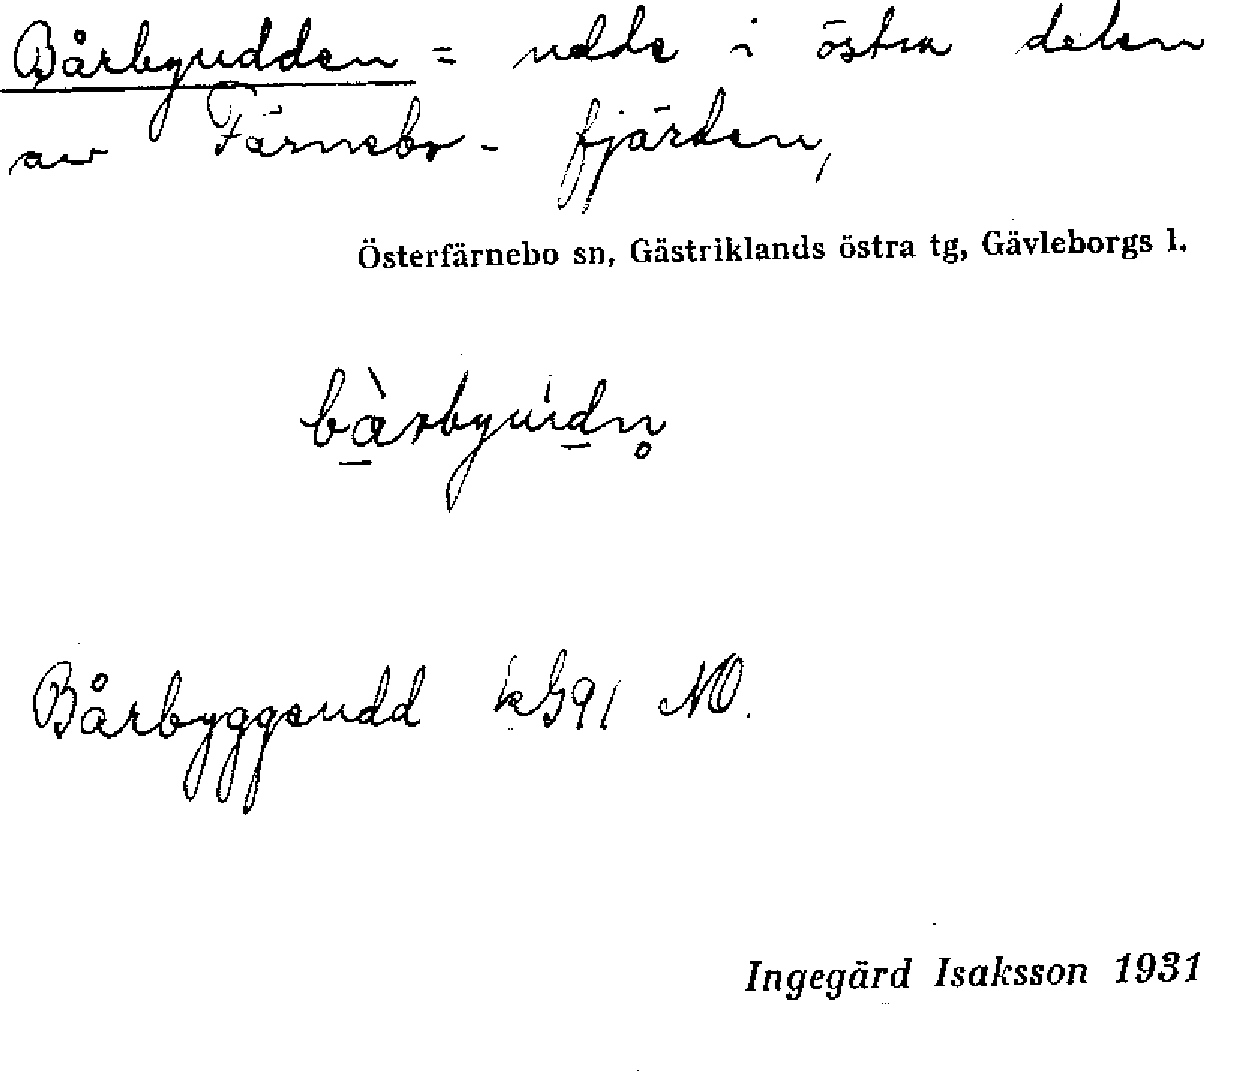 Bårbyudden = udde i östra delen
av Färnebo-fjärden,
Österfärnebo sn, Gästriklands östra tg, Gävleborgs l.
bàrbyùdn̥
Bårbyggsudd kG91 NO.
Ingegärd Isaksson 1931